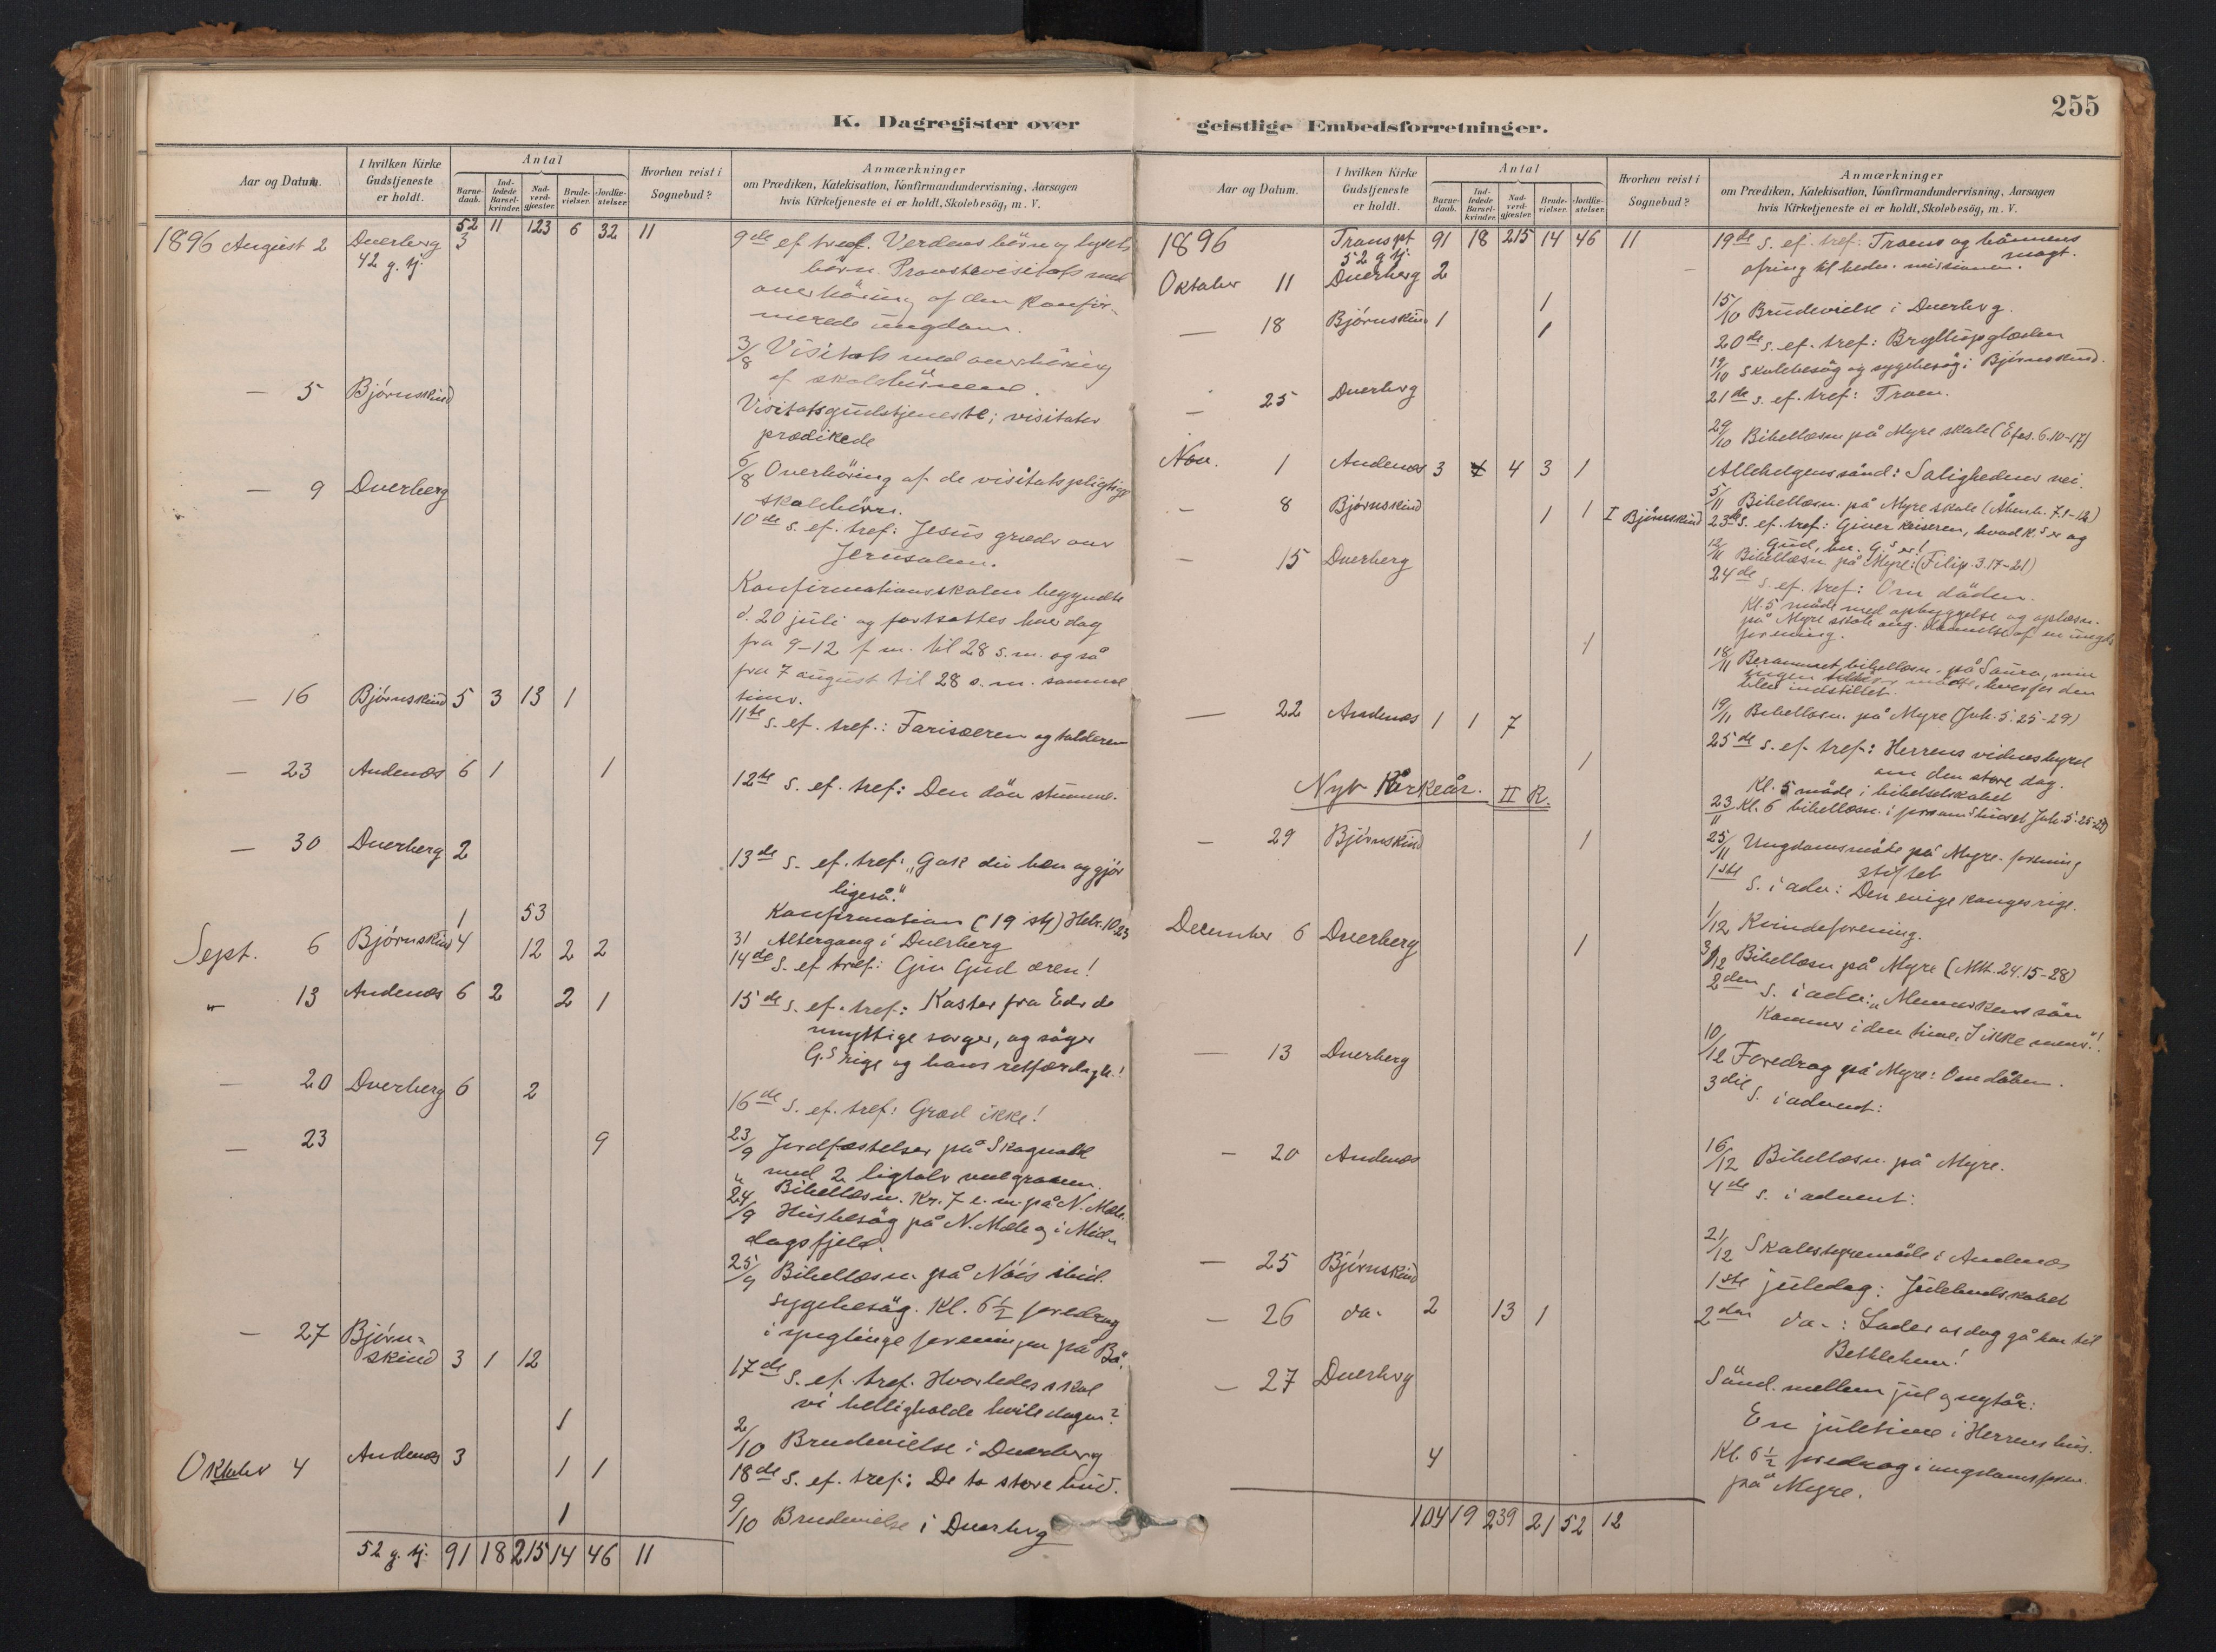 255
K. Dagregister over
geistlige Embedsforretninger.
Aar og Datum.
I hvilken Kirke Gudstjeneste er holdt.
Antal
Barnedaab.
Indledede Barselkvinder.
Nadverdgjester.
Brudevielser.
Jordfæstelser.
Hvorhen reist i Sognebud?
Anmærkninger
om Prædiken, Katekisation, Konfirmandundervisning, Aarsagen
hvis Kirketjeneste ei er holdt, Skolebesög, m. V.
52 11 123 6 32 11
1896 August 2 Dverberg 3
42 g. tj.
9de s. ef. tref. Verdens börn og lysets
börn. Provstevisitats med
overhöring af den konfir-
merede ungdom.
3/8 Visitats med overhöring
af skolebörnene.
— 5 Bjørnskind
Visitatsgudstjeneste; visitator
prædikede
6/8 Overhöring af de visitatspligtige
skolebörn.
— 9 Dverberg
10de s. ef. tref: Jesus græder over
Jerusalem.
Konfirmationsskolen begyndte
d. 20 juli og fortsattes hver dag
fra 9-12 f.m. til 28 s.m. også
fra 7 august til 28 s.m. samme
timer.
— 16 Bjørnskind 5 3 13 1
11te s. ef. tref.: Farisæeren og tolderen
— 23 Andenæs 6 1 1
12te s. ef. tref: Den döv stumme.
— 30 Dverberg 2
13de s. ef. tref: "Gak du hen og gjör
ligeså."
1 53
Konfirmation (19 stk) Hebr. 10.23
31 Altergang i Dverberg
Sept. 6 Bjørnskind 4 12 2 2
14de s. ef tref: Giv Gud æren!
" 13 Andenæs 6 2 2 1
15de s. ef. tref: Kaster fra Eder de
unyttige sorger, og söger
G.s rige og hans retfærdigh.!
— 20 Dverberg 6 2
16de s. ef. tref: Græd ikke!
— 23 9
23/9 Jordfæstelser på Skogvold
med 2 ligtaler ved graven.
" Bibellæsn. Kl. 7 e.m. på N. Mæle.
24/9 Husbesög på N. Mæle og i Mid-
dagsfjeld.
25/9 Bibellæsn på Nöis ibid.
sygebesög. Kl. 6½ foredrag
i ynglingeforeningen på Bö.
— 27 Bjørn-
skind 3 1 12
17de s. ef. tref. Hvorledes skal
vi helligholde hviledagen?
1
2/10 Brudevielse i Dverberg
Oktober 4 Andenæs 3 1 1
18de s. ef. tref: De to store bud.
1
9/10 Brudevielse i Dverberg
52 g. tj. 91 18 215 14 46 11
Aar og Datum.
I hvilken Kirke Gudstjeneste er holdt.
Antal
Barnedaab.
Indledede Barselkvinder.
Nadverdgjester.
Brudevielser.
Jordfæstelser.
Hvorhen reist i Sognebud?
Anmærkninger
om Prædiken, Katekisation, Konfirmandundervisning, Aarsagen
hvis Kirketjeneste ei er holdt, Skolebesög, m. V.
1896 Transpt 91 18 215 14 46 11
52 g tj.
19de s. ef. tref: Troens og bönnens
magt.
Oktober 11 Dverberg 2
ofring til hedn. missionen.
1
15/10 Brudevielse i Dverberg.
— 18 Bjørnskind 1 1
20de s. ef. tref: Bryllupsglæden
19/10 Skolebesög og sygebesög i Bjørnskind.
— 25 Dverberg
21de s. ef. tref: Troen.
29/10 Bibellæsn på Myre skole (Efes. 6.10-17)
Nov. 1 Andenæs 3 4 3 1
Allehelgenssönd: Salighedens vei.
5/11 Bibellæsn. på Myre skole (Åbenb. 7.1-12)
— 8 Bjørnskind 1 1 I Bjørnskind
23de s. ef. tref: Giver keiseren, hvad k.s er og
Gud, hv. G.s er!
12/11 Bibellæsn på Myre: (Filip. 3.17-21)
— 15 Dverberg
24de s. ef. tref: Om döden.
Kl. 5 möde med opbyggelse og oplæsn.
på Myre skole ang. dannelse af en ungd.
forening.
1
18/11 Berammet bibellæsn. på Saura, men
ingen mödte, hvorfor den
blev indstillet.
19/11 Bibellæsn. på Myre (Joh. 5. 25-29)
— 22 Andenæs 1 1 7
1
25de s. ef tref: Herrens vidnesbyrd
om den store dag.
Kl. 5 möde i bibelselskabet
Nyt Kirkeår. II R.
23/11 Kl. 6 bibellæsn. i forsaml. huset Joh. 5. 25-29)
25/11 Ungdomsmöde på Myre. forening
stiftet
— 29 Bjørnskind 1
1ste s. i adv: Den evige konges rige.
1/12 Kvindeforening.
December 6 Dverberg 1
3/12 Bibellæsn på Myre (Mtt. 24. 15-28)
2den s. i adv: "Menneskens sön
kommer i den time, I ikke mener"!
10/12 Foredrag på Myre: Om dåben.
— 13 Dverberg
3die s. i advent:
16/12 Bibellæsn. på Myre.
— 20 Andenæs
4de s. i advent:
21/12 Skolestyremöde i Andenæs
— 25 Bjørnskind
1ste juledag: Julebudskabet
— 26 do. 2 13 1
2den do.: Lader os dog gå hen til
Bethlehem!
— 27 Dverberg
Sönd. mellem jul og nytår:
En juletime i Herrens hus.
4
Kl. 6½ foredrag i ungdomsforen.
på Myre.
104 19 239 21 52 12